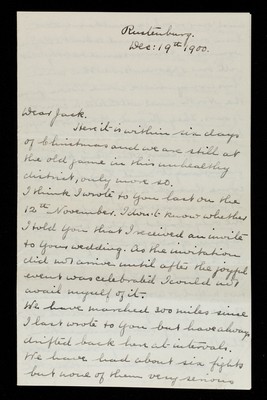 Rustenburg.
Dec: 19th 1900.
Dear Jack.
Here it is within six days
of Christmas and we are still at
the old game in this unhealthy
district, only more so.
I think I wrote to you last on the
12th November. I don't know whether
I told you that I received an invite
to your wedding. As the invitation
did not arrive until after the joyful
event was celebrated I could not
avail myself of it.
We have marched 300 miles since
I last wrote to you but have always
drifted back here at intervals.
We have had about six fights
but none of them very serious